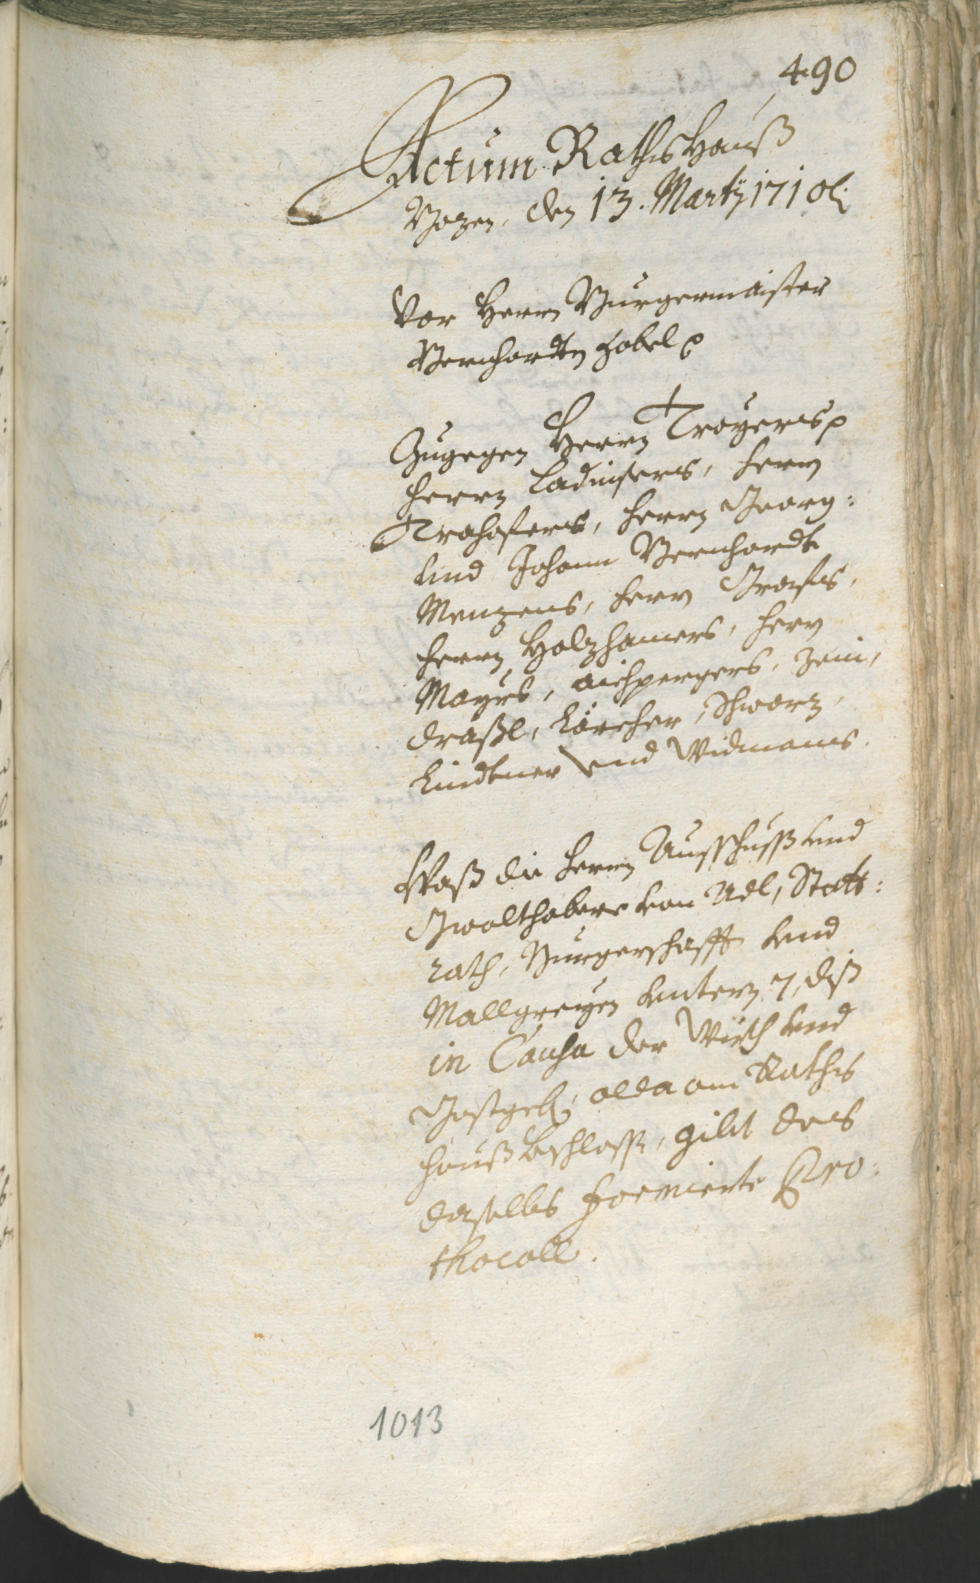 490
Actum Rathshauß
Bozen, den 13. Martÿ 1710
Vor Herrn Burgermaister
Bernhardten Zobel
Zugegen Herrn Troÿers
Herrn Ladinsers, Herrn
Herrn Georg:
und Johann Bernhardt
Menzens, Herrn Grafls,
Herrn Holzhamers, Herrn
Mayrs, Aichpergers, Zein,
draßl, Kärcher, Schwarz,
Lindtner und Widmanns.
Waß die Herrn Ausschuß und
Gwalthaber von Adl, Statt:
rath, Burgerschafft und
Mallgreÿen unterm 7. diß
in Causa der Würth und
Gastgeb, alda am Raths
hauß beschlossen, gibt das
daselbs formierte Pro:
thocoll.
1013